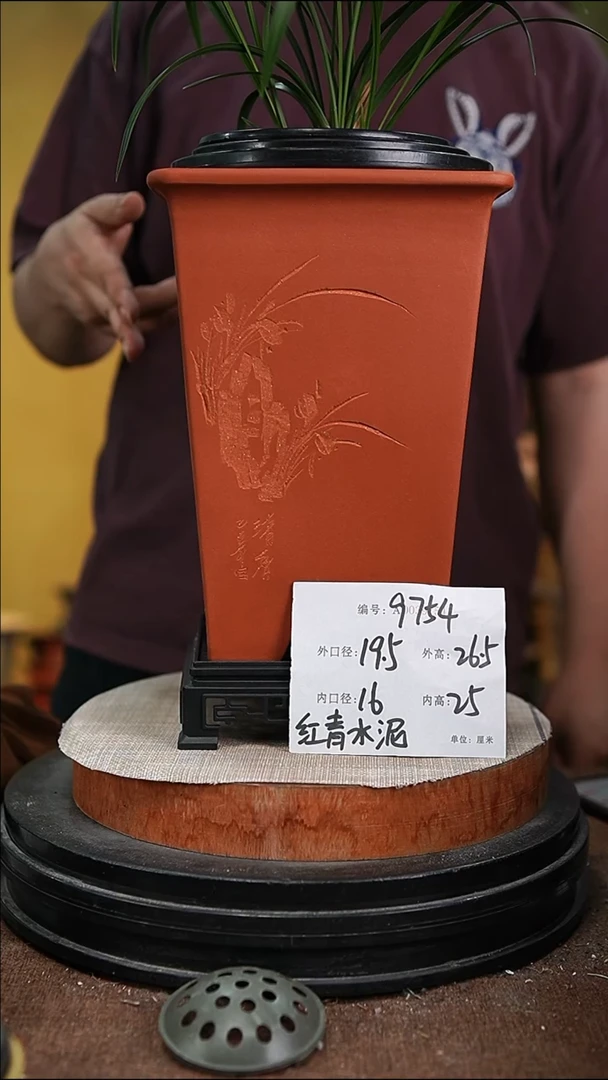 编号: 9754
外口径: 19.5 外高: 26.5
内口径: 16 内高: 25
红青水泥
单位: 厘米